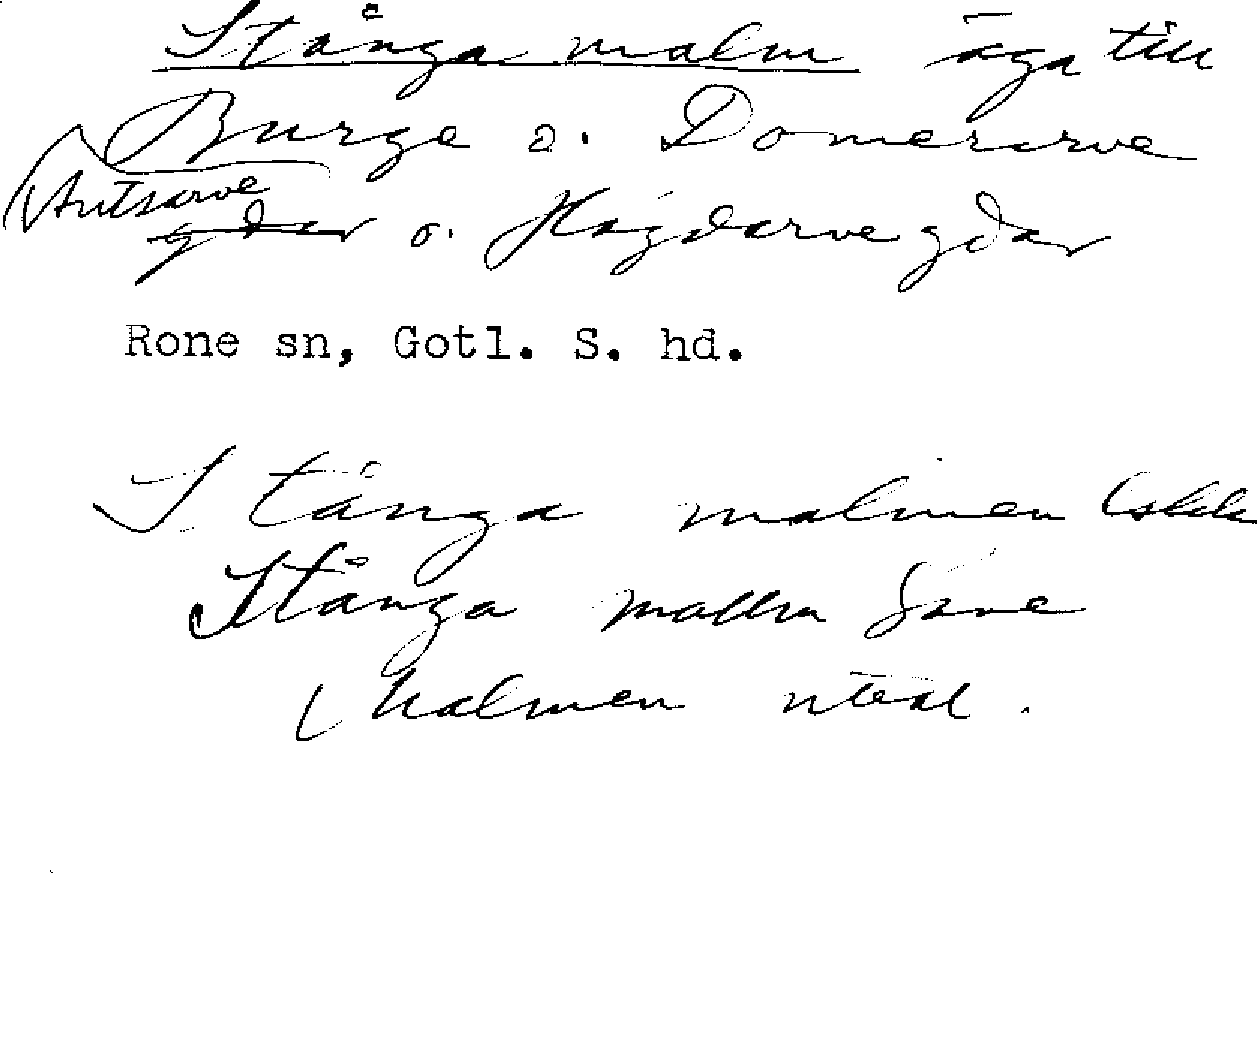 Stånga malm äga till
Burge o. Domerarve
Autsarve
gdar o. Hägdarve gdar
Rone sn, Gotl. S. hd.
Stånga malmen
Stånga malm
Malmen